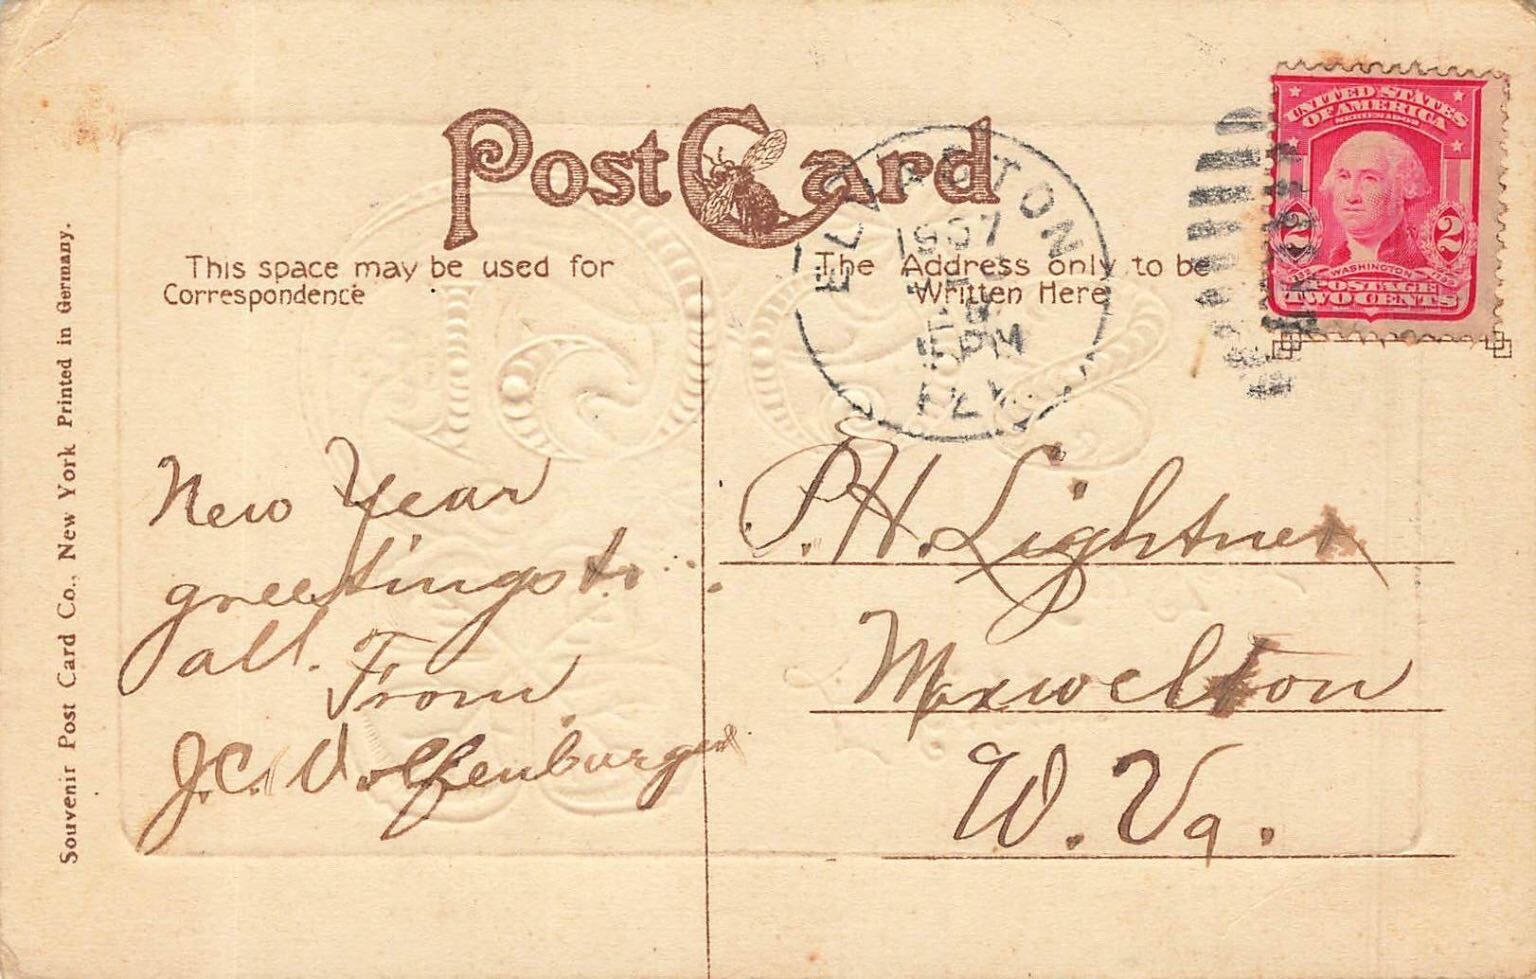 Post Card
This space may be used for
Correspondence
The Address only to be
Written Here
1907
PM
KY.
UNITED STATES
OF AMERICA
SERIES 1902
2 2
WASHINGTON
POSTAGE
TWO CENTS
New Year
greetings to
all.
From
J.C.
P.H. Lightner
Maxwelton
W. Va.
Souvenir Post Card Co., New York Printed in Germany.